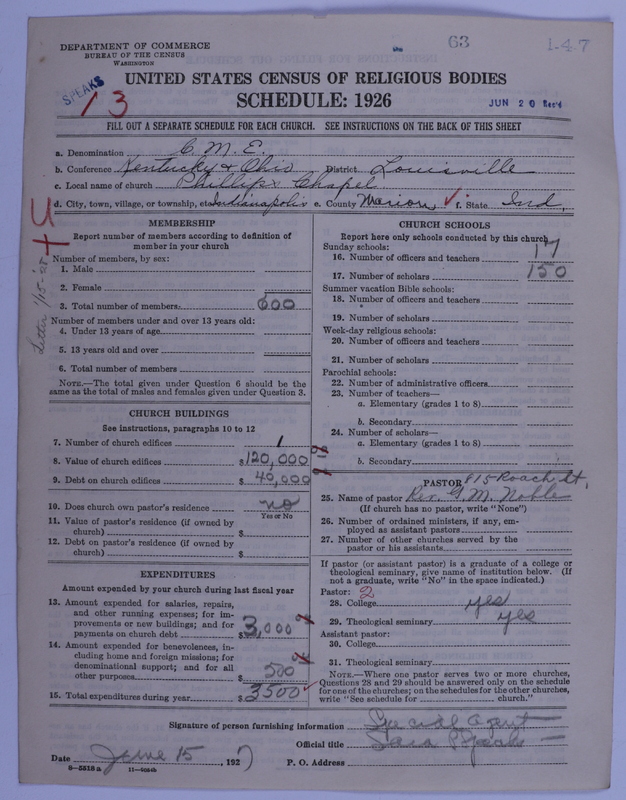 DEPARTMENT OF COMMERCE
BUREAU OF THE CENSUS
WASHINGTON
63
147
SPEAKS
13
UNITED STATES CENSUS OF RELIGIOUS BODIES
SCHEDULE: 1926
JUN 20 Rec'd
FILL OUT A SEPARATE SCHEDULE FOR EACH CHURCH. SEE INSTRUCTIONS ON THE BACK OF THIS SHEET
a. Denomination C. M. E.
b. Conference Kentucky & Ohio District Louisville
c. Local name of church Phillips Chapel
d. City, town, village, or township, etc Indianapolis e. County Marion ✓ f. State Ind.
Letter 1/15-'28
MEMBERSHIP
Report number of members according to definition of
member in your church
Number of members, by sex:
1. Male
2. Female
3. Total number of members 600
Number of members under and over 13 years old:
4. Under 13 years of age
5. 13 years old and over
6. Total number of members
NOTE.—The total given under Question 6 should be the
same as the total of males and females given under Question 3.
CHURCH BUILDINGS
See instructions, paragraphs 10 to 12
7. Number of church edifices 1
8. Value of church edifices $120,000
9. Debt on church edifices $40,000
10. Does church own pastor's residence no
Yes or No
11. Value of pastor's residence (if owned by
church) $
12. Debt on pastor's residence (if owned by
church) $
EXPENDITURES
Amount expended by your church during last fiscal year
13. Amount expended for salaries, repairs,
and other running expenses; for im-
provements or new buildings; and for
payments on church debt $3,000
14. Amount expended for benevolences, in-
cluding home and foreign missions; for
denominational support; and for all
other purposes $500
15. Total expenditures during year $3500 ✓
CHURCH SCHOOLS
Report here only schools conducted by this church
Sunday schools:
16. Number of officers and teachers 17
17. Number of scholars 150
Summer vacation Bible schools:
18. Number of officers and teachers
19. Number of scholars
Week-day religious schools:
20. Number of officers and teachers
21. Number of scholars
Parochial schools:
22. Number of administrative officers
23. Number of teachers—
a. Elementary (grades 1 to 8)
b. Secondary
24. Number of scholars—
a. Elementary (grades 1 to 8)
b. Secondary
PASTOR 815 Roach St.
25. Name of pastor Rev. G. M. Noble
(If church has no pastor, write "None")
26. Number of ordained ministers, if any, em-
ployed as assistant pastors
27. Number of other churches served by the
pastor or his assistants
If pastor (or assistant pastor) is a graduate of a college or
theological seminary, give name of institution below. (If
not a graduate, write "No" in the space indicated.)
Pastor: 2
28. College yes
29. Theological seminary yes
Assistant pastor:
30. College
31. Theological seminary
NOTE.—Where one pastor serves two or more churches,
Questions 28 and 29 should be answered only on the schedule
for one of the churches; on the schedules for the other churches,
write "See schedule for church."
Signature of person furnishing information Special Agent
Official title Sara Speaks
Date June 15, 1927 P. O. Address
8—5518 a 11—4034b